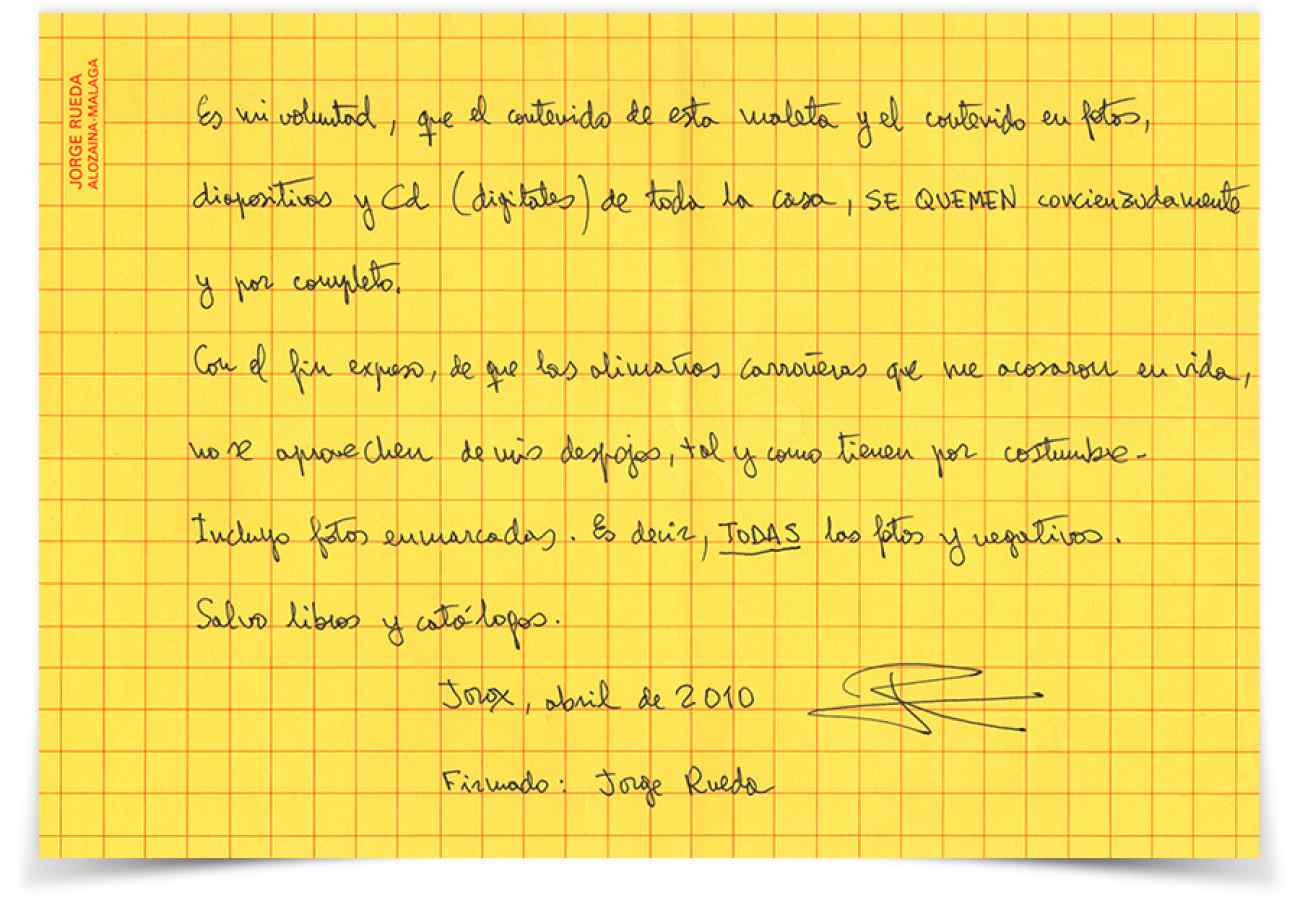 JORGE RUEDA
ALOZAINA-MALAGA
Es mi voluntad, que el contenido de esta maleta y el contenido en fotos,
diapositivas y Cd (digitales) de toda la casa, SE QUEMEN concienzudamente
y por completo.
Con el fin expreso, de que las alimañas carroñeras que me acosaron en vida,
no se aprovechen de mis despojos, tal y como tienen por costumbre-
Incluyo fotos enmarcadas. Es decir, TODAS las fotos y negativos.
Salvo libros y catálogos.
Jorox, abril de 2010
Firmado: Jorge Rueda